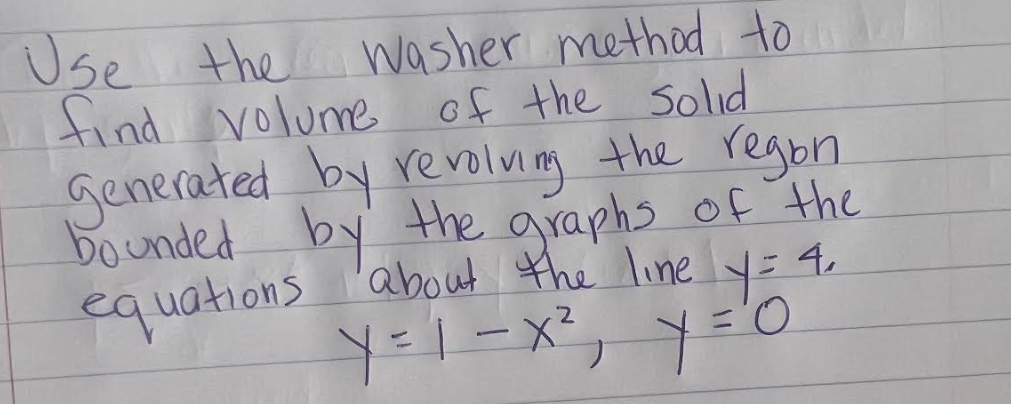 Use the washer method to
find volume of the solid
generated by revolving the region
bounded by the graphs of the
equations about the line y = 4.
y = 1 - x², y = 0